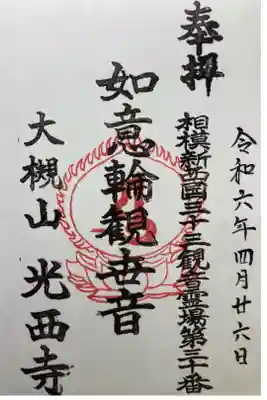 奉拝
令和六年四月廿六日
相模新西國三十三観音霊場第三十番
如意輪観世音
大槻山 光西寺